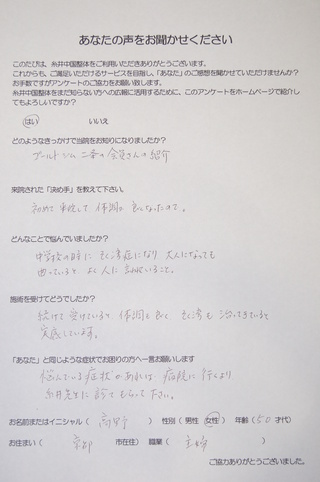 あなたの声をお聞かせください
このたびは、糸井中国整体をご利用いただきありがとうございます。
これからも、ご満足いただけるサービスを目指し、「あなた」のご感想を聞かせていただけませんか?
お手数ですがアンケートのご協力をお願い致します。
糸井中国整体をまだ知らない方への広報に活用するために、このアンケートをホームページで紹介し
てもよろしいですか?
はい いいえ
どのようなきっかけで当院をお知りになりましたか?
ゴールドジム 二条の会員さんの紹介
来院された「決め手」を教えて下さい。
初めて来院して体調が良くなったので。
どんなことで悩んでいましたか?
中学校の時に 症になり 大人になっても
困っていると よく人に
施術を受けてどうでしたか?
続けて受けていると 体調も良く も治ってきていると
実感しています。
「あなた」と同じような症状でお困りの方へ一言お願いします
悩んでいる症状があれば 病院に行くより
糸井先生に診てもらって下さい。
お名前またはイニシャル( ) 性別(男性 女性) 年齢(50 才代)
お住まい( 京都 市在住) 職業( 主婦 )
ご協力ありがとうございました。